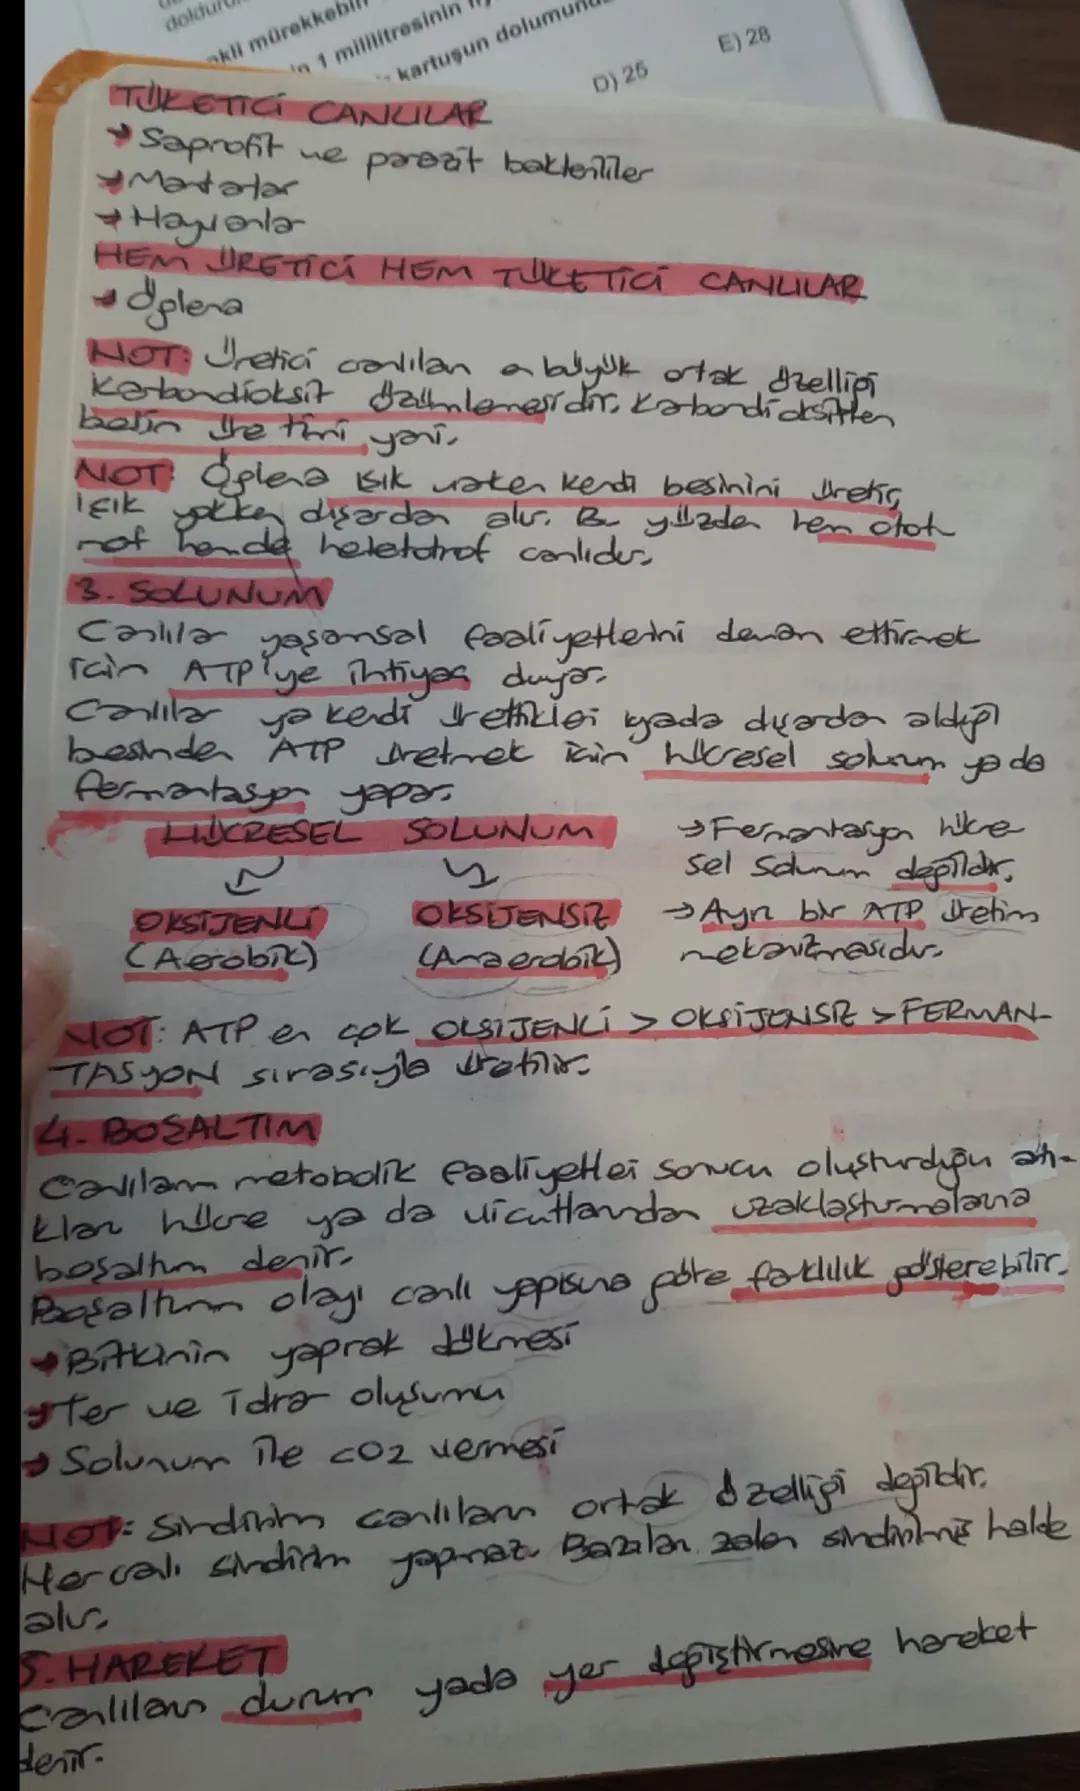 nkli mürekkebin
'n 1 mililitresinin
kartuşun dolumunu
D) 25
E) 28
TÜKETİCİ CANLILAR
→ Saprofit ve parazit bakteriler
→ Mantarlar
→ Hayvanlar
HEM ÜRETİCİ HEM TÜKETİCİ CANLILAR
→ Öglena
NOT: Üretici canlıların en büyük ortak özelliği
Karbondioksit özümlemesidir. Karbondioksitten
besin üretimi yani.
NOT: Öglena ışık varken kendi besinini üretir,
ışık yokken dışardan alır. Bu yüzden hem otot
rof hemde heletotrof canlıdır.
3. SOLUNUM
Canlılar yaşamsal faaliyetlerini devam ettirmek
için ATP'ye ihtiyaç duyar.
Canlılar ya kendi ürettikleri yada dışardan aldığı
besinden ATP üretmek için hücresel solunum ya da
fermantasyon yapar.
HÜCRESEL SOLUNUM
OKSİJENLİ (Aerobik)
OKSİJENSİZ (Anaerobik)
→ Fermantasyon hücre
sel solunum değildir.
→ Ayrı bir ATP üretim
mekanizmasıdır.
NOT: ATP en çok OKSİJENLİ > OKSİJENSİZ > FERMAN-
TASYON sırasıyla üretilir.
4. BOŞALTIM
Canlıların metabolik faaliyetleri sonucu oluşturduğu atı-
kları hücre ya da vücutlarından uzaklaştırmalarına
boşaltım denir.
Boşaltım olayı canlı yapısına göre farklılık gösterebilir.
→ Bitkinin yaprak dökmesi
→ Ter ve idrar oluşumu
→ Solunum ile CO2 vermesi
NOT: Sindirim canlıların ortak özelliği değildir.
Her canlı sindirim yapmaz. Bazıları zaten sindirilmiş halde
alır.
5. HAREKET
Canlıların durum yada yer değiştirmesine hareket
denir.